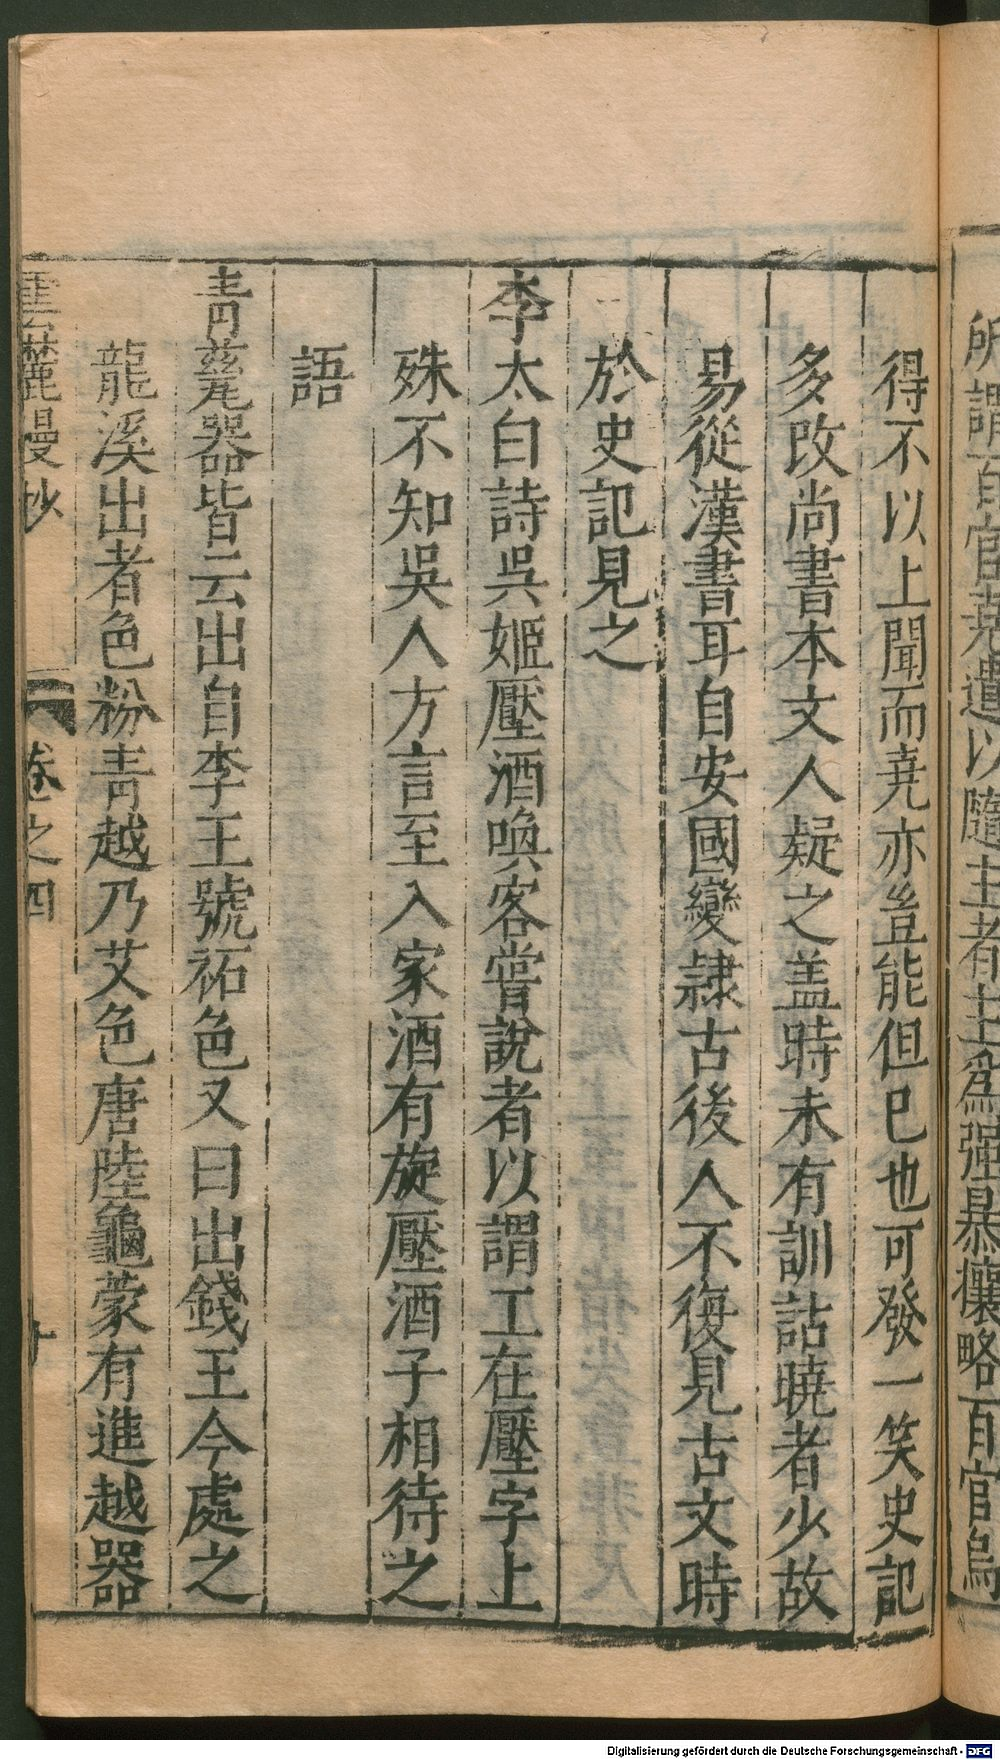 所謂百官堯遣以隨主者主為强暴攘略百官烏
得不以上聞而堯亦豈能但已也可發一笑史記
多改尚書本文人疑之盖時未有訓詁曉者少故
易從漢書耳自安國變隷古後人不復見古文時
於史記見之
李太白詩吳姬壓酒喚客甞說者以謂工在壓字上
殊不知吳人方言至入家酒有旋壓酒子相待之
語
青甆器皆云出自李王號祕色又曰出錢王今處之
龍溪出者色粉青越乃艾色唐陸龜蒙有進越器
雲麓漫抄 卷之四 十
Digitalisierung gefördert durch die Deutsche Forschungsgemeinschaft - DFG